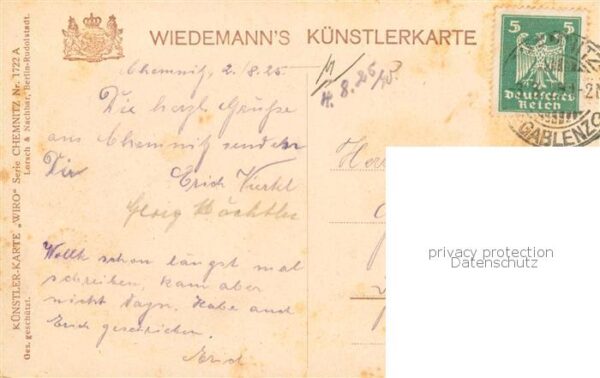 WIEDEMANN'S KÜNSTLERKARTE
KÜNSTLER-KARTE „WIRO" Serie CHEMNITZ Nr. 1722 A
Ges. geschützt. Lorsch & Nachbar, Berlin-Rudolstadt.
5 5
Deutsches
Reich
CHEMNITZ
GABLENZ
Chemnitz 2./8.25
4.8.25
Die herzl Grüße
aus Chemnitz senden
Dir
Erich Viertel
Georg
Wollte schon längst mal
schreiben, kam aber
nicht dazu. Habe auch
Erich geschrieben.
Her
privacy protection
Datenschutz